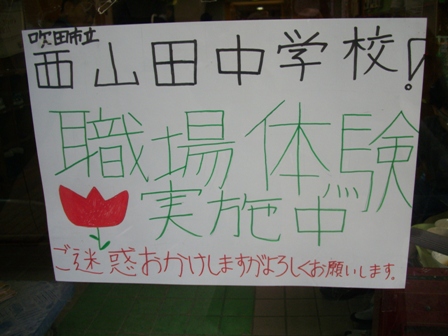 吹田市立
西山田中学校!
職場体験
実施中
ご迷惑おかけしますがよろしくお願いします。